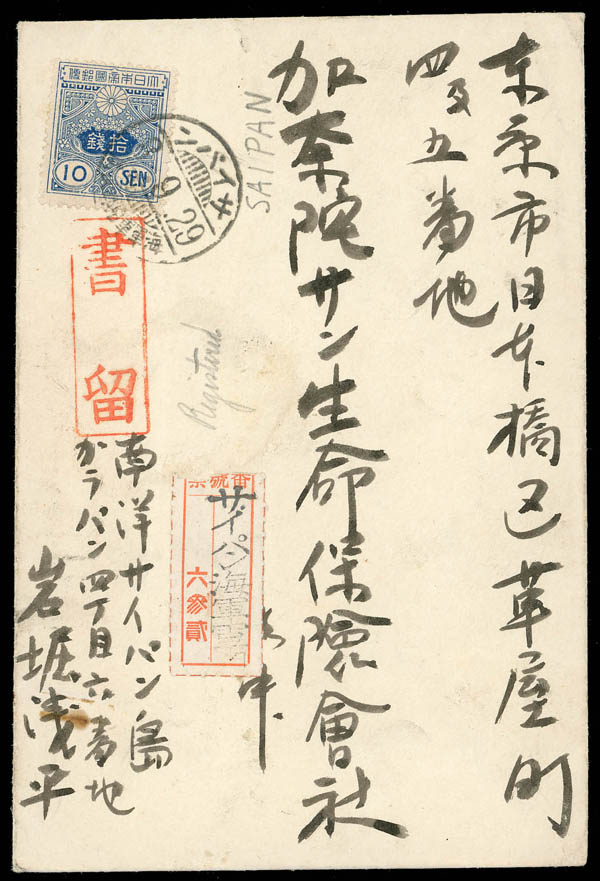 東京市日本橋区革屋町
四及五番地
加奈陀サン生命保險會社
御中
SAIPAN
大日本帝國郵便
拾錢
10 SEN
サイパン
9.29
書留
Registered
番號票
サイパン海軍
六参貳
南洋サイパン島
ガラパン四丁目六番地
岩堀浅平